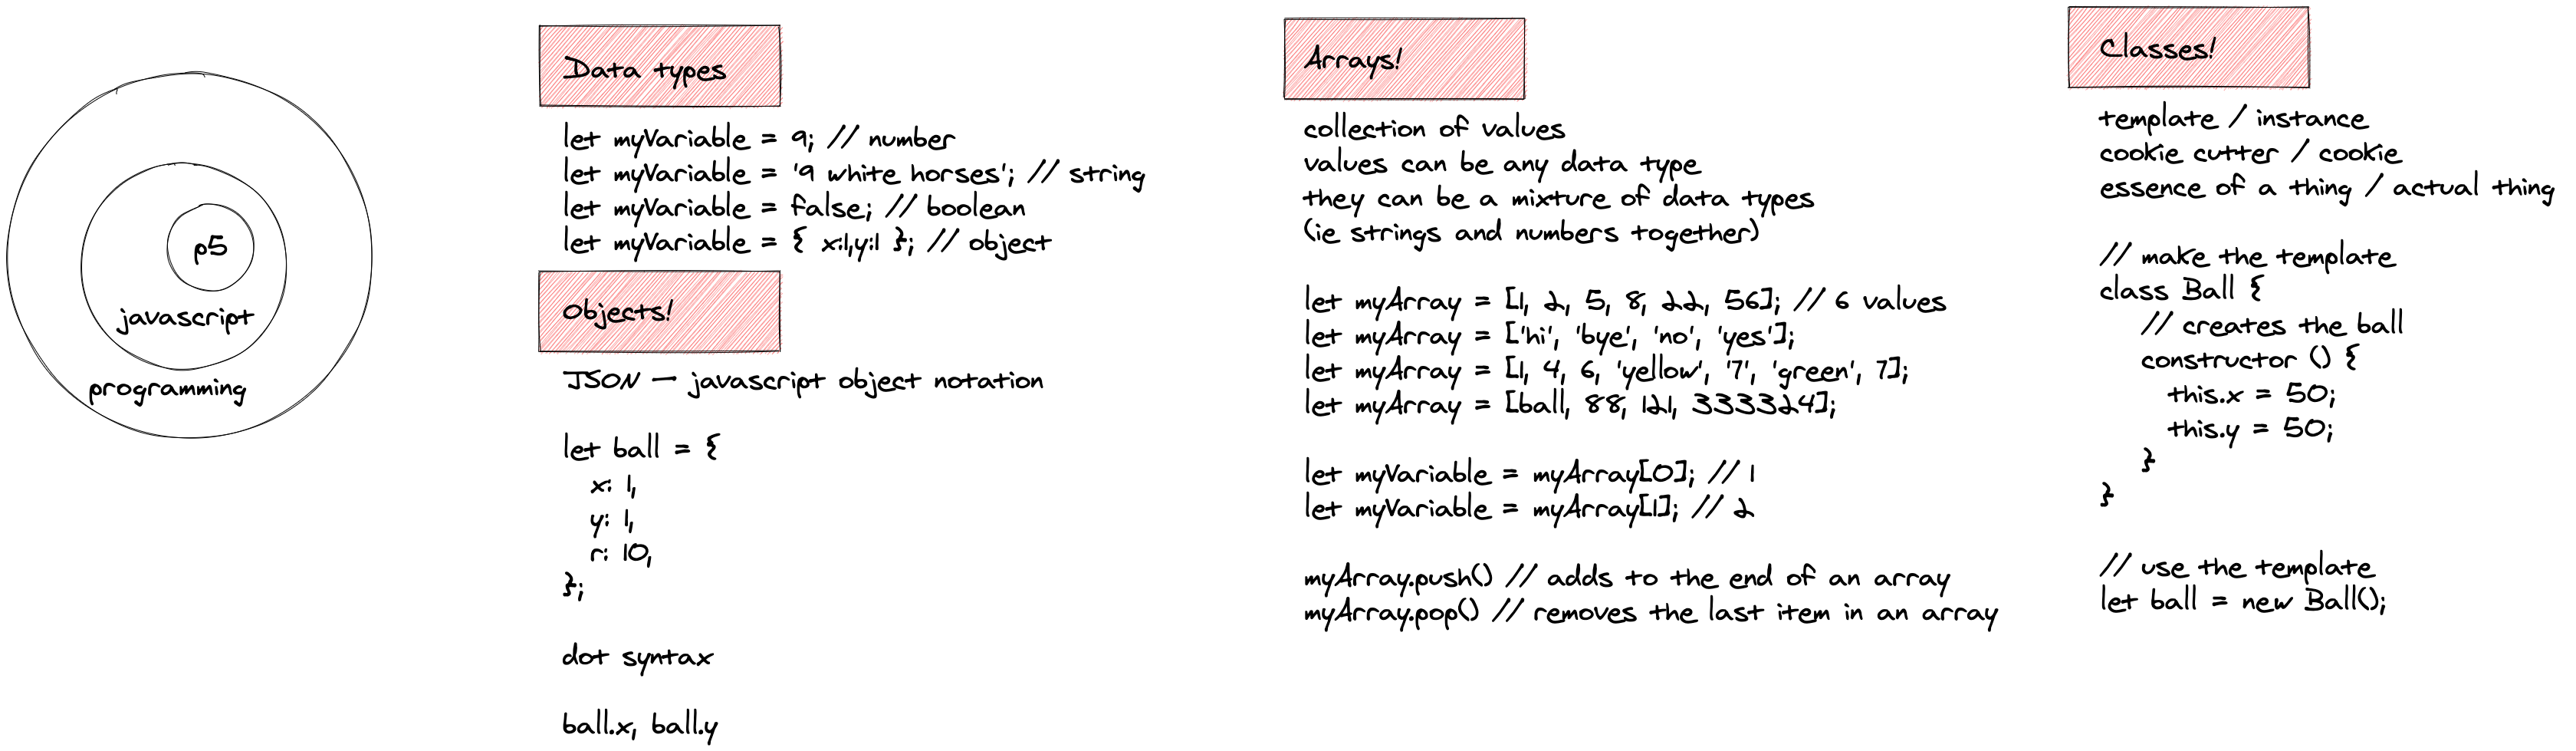 p5
javascript
programming
Data types
let myVariable = 9; // number
let myVariable = '9 white horses'; // string
let myVariable = false; // boolean
let myVariable = { x:1,y:1 }; // object
Objects!
JSON — javascript object notation
let ball = {
x: 1,
y: 1,
r: 10,
};
dot syntax
ball.x, ball.y
Arrays!
collection of values
values can be any data type
they can be a mixture of data types
(ie strings and numbers together)
let myArray = [1, 2, 5, 8, 22, 56]; // 6 values
let myArray = ['hi', 'bye', 'no', 'yes'];
let myArray = [1, 4, 6, 'yellow', '7', 'green', 7];
let myArray = [ball, 88, 121, 333324];
let myVariable = myArray[0]; // 1
let myVariable = myArray[1]; // 2
myArray.push() // adds to the end of an array
myArray.pop() // removes the last item in an array
Classes!
template / instance
cookie cutter / cookie
essence of a thing / actual thing
// make the template
class Ball {
// creates the ball
constructor () {
this.x = 50;
this.y = 50;
}
}
// use the template
let ball = new Ball();